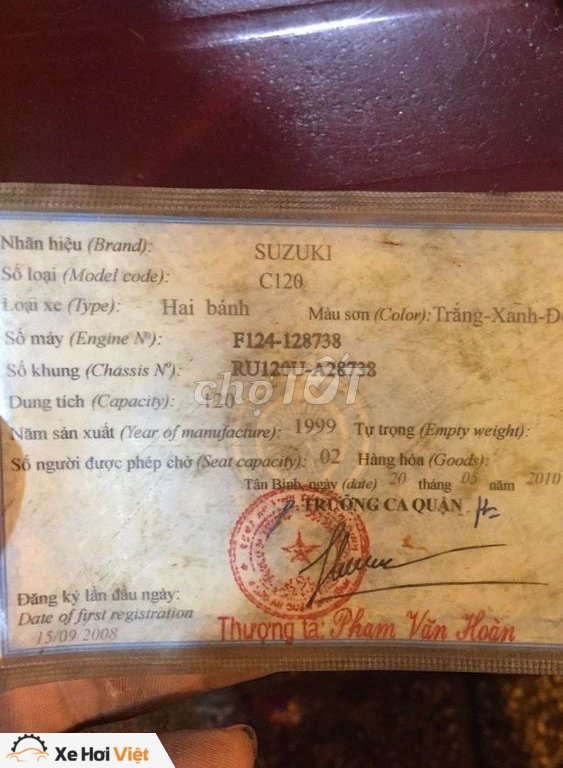 Nhãn hiệu (Brand): SUZUKI
Số loại (Model code): C120
Loại xe (Type): Hai bánh Màu sơn (Color): Trắng-Xanh-Đ
Số máy (Engine Nº): F124-128738
Số khung (Chassis Nº): RU120U-A28738
chợTỐT
Dung tích (Capacity): 120
Năm sản xuất (Year of manufacture): 1999 Tự trọng (Empty weight):
Số người được phép chở (Seat capacity): 02 Hàng hóa (Goods):
Tân Bình, ngày (date) 20 tháng 05 năm 2010
TRƯỞNG CA QUẬN
Đăng ký lần đầu ngày:
Date of first registration
15/09 2008
Thượng tá: Phạm Văn Hoàn
Xe Hơi Việt